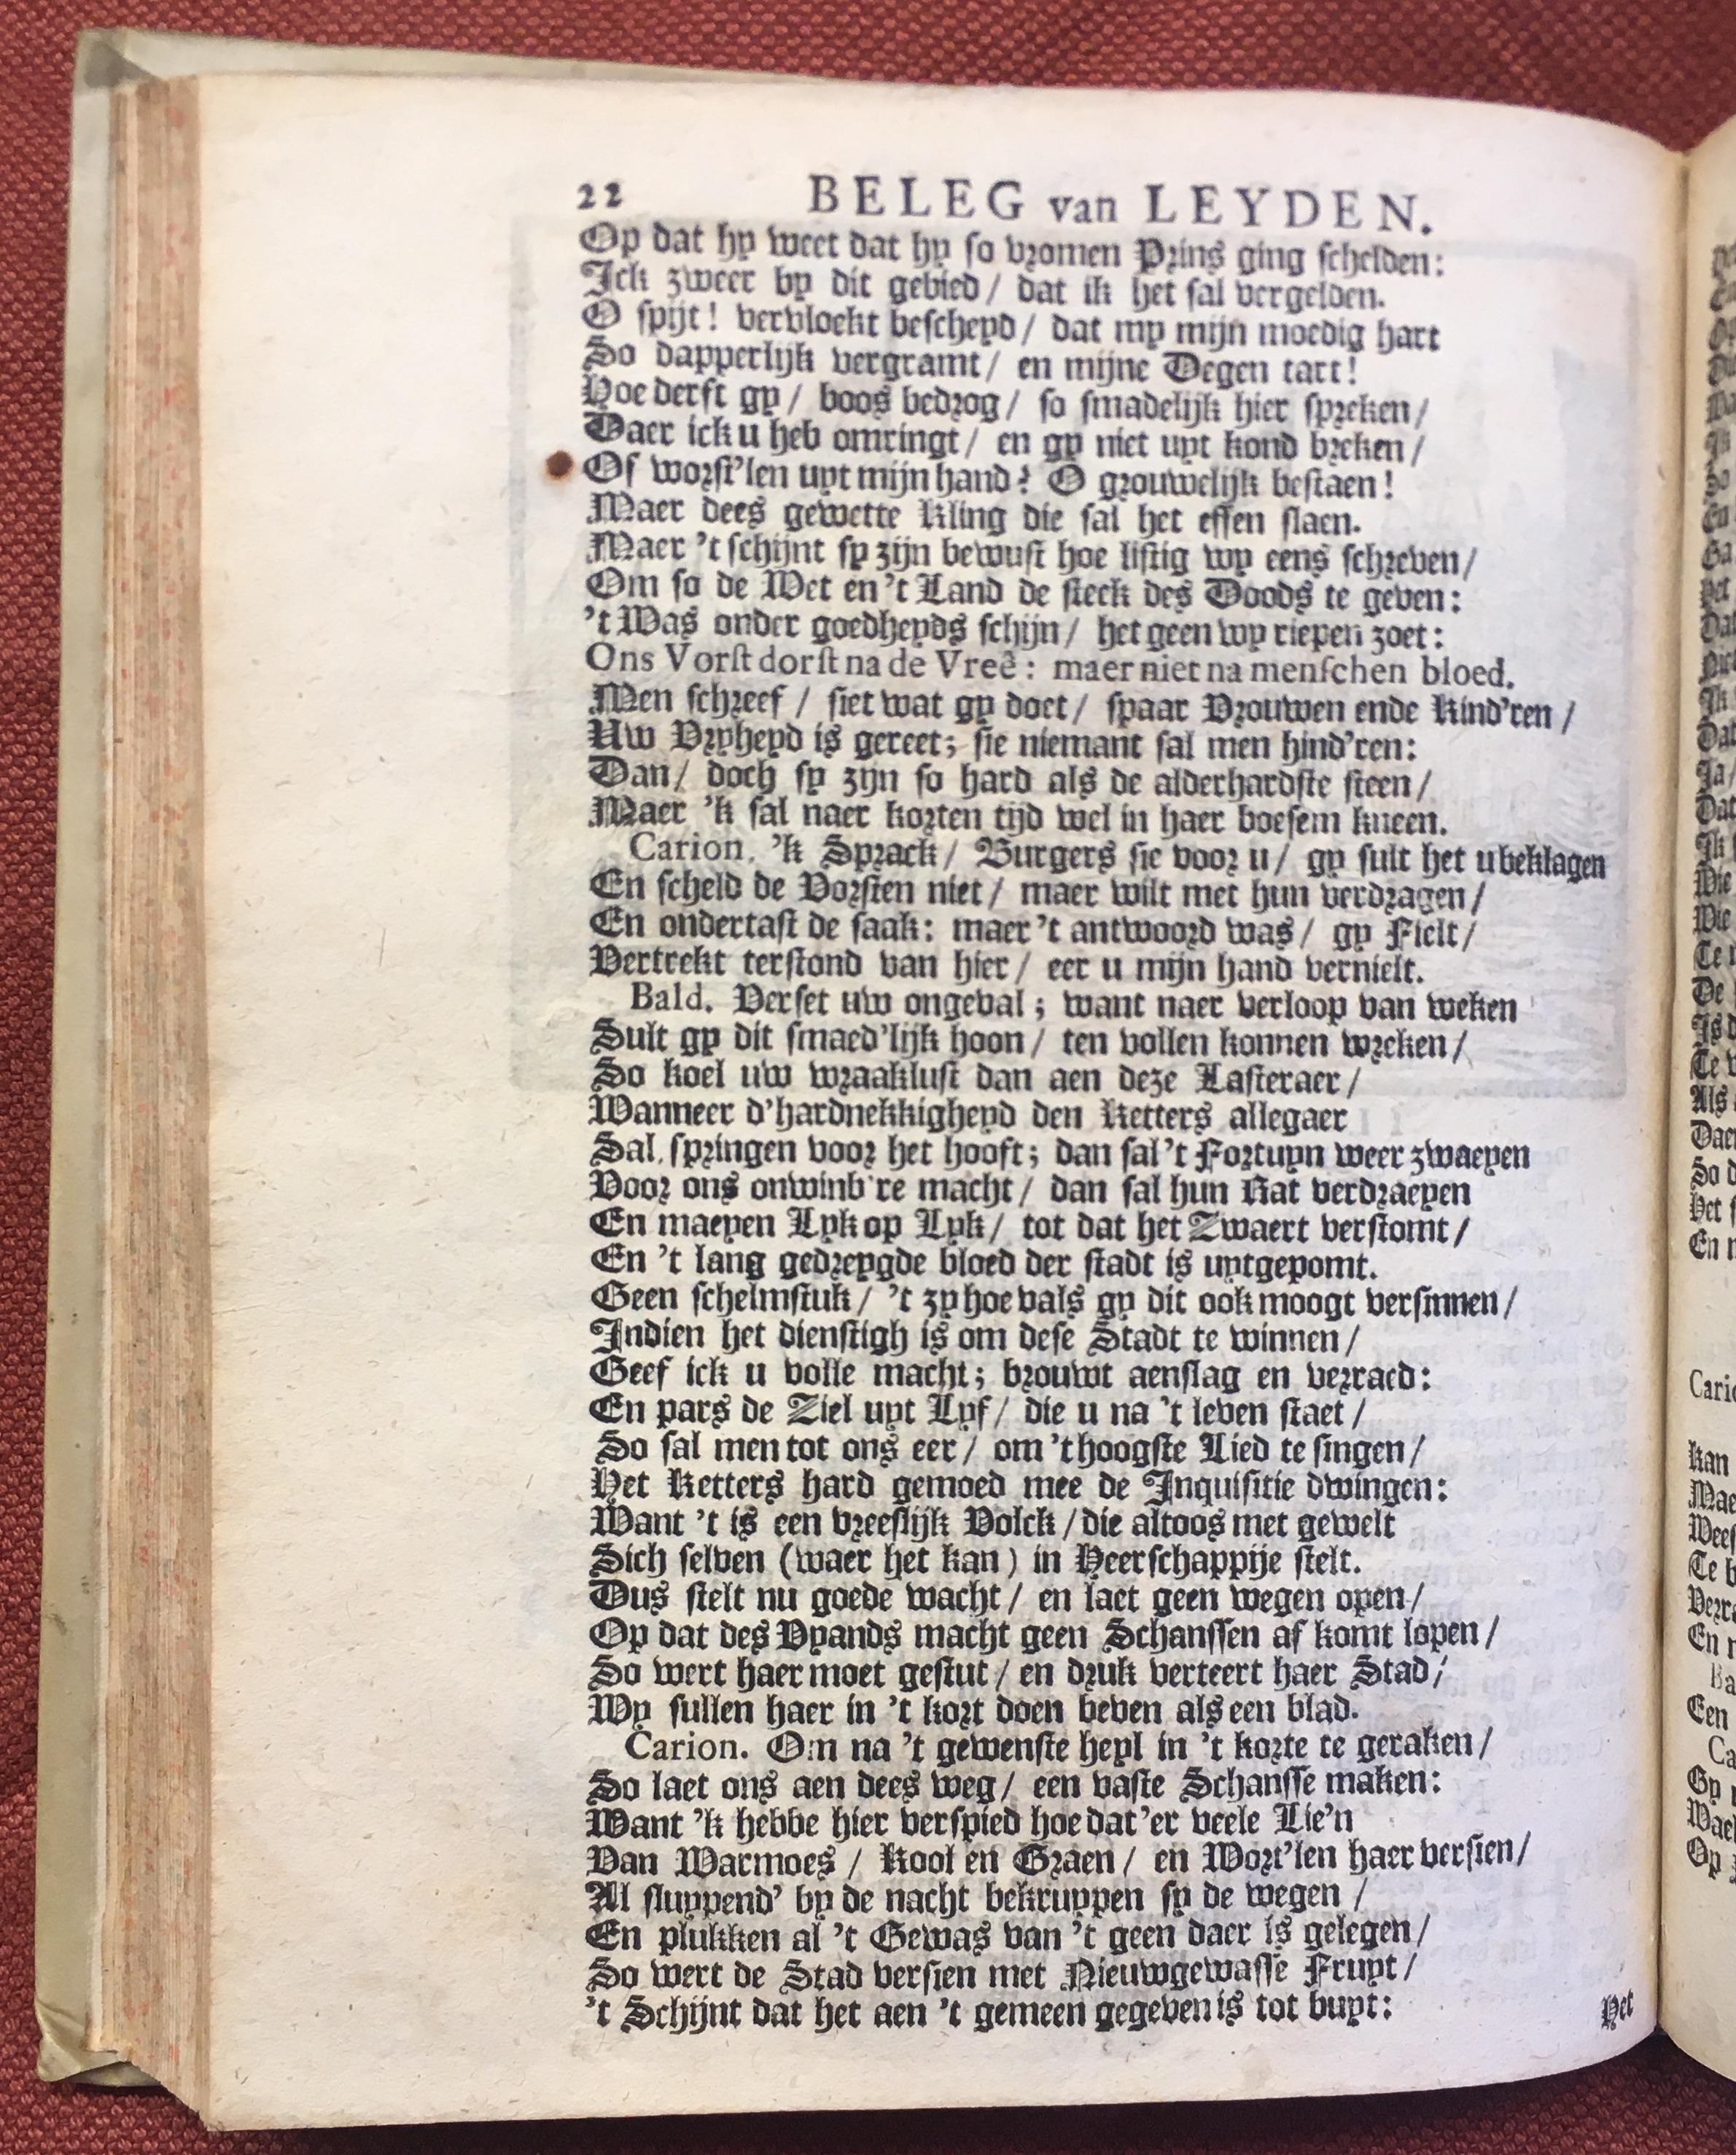 22 BELEG van LEYDEN.
Op dat hy weet dat hy so vromen Prins ging schelden:
Ick zweer by dit gebied / dat ik het sal vergelden.
O spijt! vervloekt bescheyd / dat my mijn moedig hart
So dapperlijk vergramt / en mijne Degen tart!
Hoe derft gy / boos bedrog / so smadelijk hier spreken /
Daer ick u heb omringt / en gy niet uyt kond breken /
Of worst'len uyt mijn hand? O grouwelijk bestaen!
Maer dees gewette Kling die sal het effen slaen.
Maer 't schijnt sy zijn bewust hoe listig wy eens schreven /
Om so de Wet en 't Land de steek des Doods te geven:
't Was onder goedheyds schijn / het geen wy riepen zoet:
Ons Vorst dorst na de Vreê: maer niet na menschen bloed.
Men schreef / siet wat gy doet / spaar Vrouwen ende Kind'ren /
Uw Vryheyd is gereet; sie niemant sal men hind'ren:
Dan / doch sy zyn so hard als de alderhardste steen /
Maer 'k sal naer korten tijd wel in haer boesem kneen.
Carion. 'k Sprack / Burgers sie voor u / gy sult het u beklagen
En scheld de Vorsten niet / maer wilt met hun verdragen /
En ondertast de saak: maer 't antwoord was / gy Fielt /
Vertrekt terstond van hier / eer u mijn hand vernielt.
Bald. Verset uw ongeval; want naer verloop van weken
Sult gy dit smaed'lijk hoon / ten vollen konnen wreken /
So koel uw wraaklust dan aen deze Lasteraer /
Wanneer d'hardnekkigheyd den Ketters allegaer
Sal springen voor het hooft; dan sal 't Fortuyn weer zwaeyen
Voor ons onwinb're macht / dan sal hun Rat verdraeyen
En maeyen Lyk op Lyk / tot dat het Zwaert verstomt /
En 't lang gedreygde bloed der stadt is uytgepomt.
Geen schelmstuk / 't zy hoe vals gy dit ook moogt versinnen /
Indien het dienstigh is om dese Stadt te winnen /
Geef ick u volle macht; brouwt aenslag en verraed:
En pars de Ziel uyt Lyf / die u na 't leven staet /
So sal men tot ons eer / om 't hoogste Lied te singen /
Het Ketters hard gemoed mee de Inquisitie dwingen:
Want 't is een vreeslijk Volck / die altoos met gewelt
Sich selven (waer het kan) in Heerschappije stelt.
Dus stelt nu goede wacht / en laet geen wegen open /
Op dat des Vyands macht geen Schanssen af komt lopen /
So wert haer moet gestut / en druk verteert haer Stad /
Wy sullen haer in 't kort doen beven als een blad.
Carion. Om na 't gewenste heyl in 't korte te geraken /
So laet ons aen dees weg / een vaste Schansse maken:
Want 'k hebbe hier verspied hoe dat 'er veele Lie'n
Van Warmoes / Kool en Graen / en Wort'len haer versien /
Al sluypend' by de nacht bekruypen sy de wegen /
En plukken al 't Gewas van 't geen daer is gelegen /
So wert de Stad versien met Nieuwgewasse Fruyt /
't Schijnt dat het aen 't gemeen gegeven is tot buyt:
Het